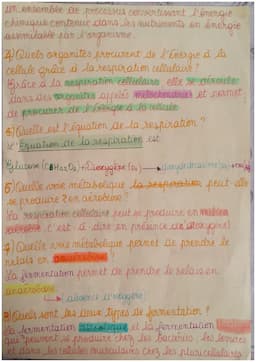 un ensemble de processus convertissant l'énergie
chimique contenue dans les nutriments en énergie
assimilable par l'organisme.
4) Quels organites procurent de l'énergie à la
cellule grâce à la respiration cellulaire?
Grâce à la respiration cellulaire elle se déroule
dans des organites appelés mitochondries et permet
de procurer de l'énergie à la cellule
5) Quelle est l'équation de la respiration?
L'Équation de la respiration est
Glucose + Dioxygène (O2)
6) Quelle voie métabolique la respiration peut-elle
se produire en aérobiose?
La respiration cellulaire peut se produire en milieu
aérobie c'est à dire en présence de dioxygène)
7) Quelle voie métabolique permet de prendre le
relais en anaérobiose
La fermentation permet de prendre le relais en
anaérobiose.
absence d'oxygène
8) Quels sont les deux types de fermentation?
La fermentation alcoolique et la fermentation
que peuvent se produire chez les bactéries, les levures
et dans les cellules musculaires chez les pluricellulaires